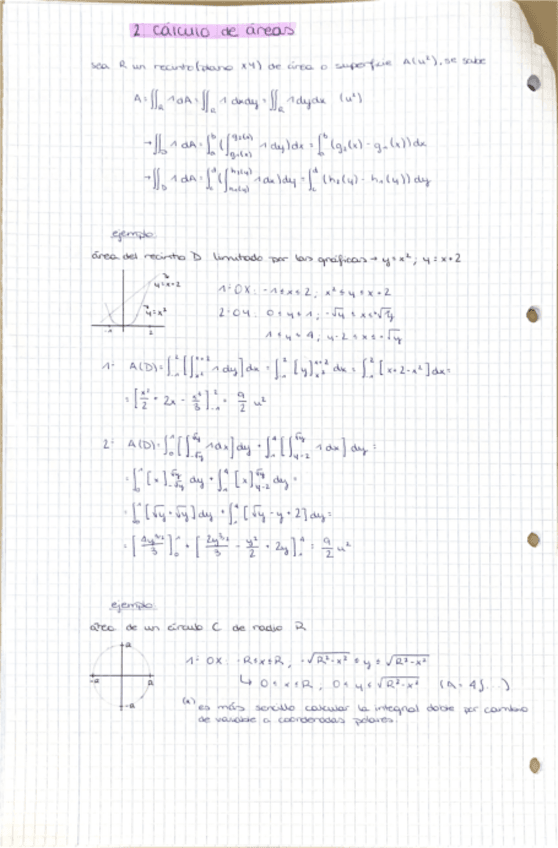 2 cálculo de áreas
sea R un recinto (plano XY) de área o superficie A(u²), se sabe
A = ∬_R 1 dA = ∬_R 1 dxdy = ∬_R 1 dydx (u²)
→ ∬_D 1 dA = ∫_a^b (∫_{g₁(x)}^{g₂(x)} 1 dy) dx = ∫_a^b (g₂(x) - g₁(x)) dx
→ ∬_D 1 dA = ∫_c^d (∫_{h₁(y)}^{h₂(y)} 1 dx) dy = ∫_c^d (h₂(y) - h₁(y)) dy
ejemplo:
área del recinto D limitado por las gráficas → y = x²; y = x+2
y = x+2
y = x²
-1 2
1- OX: -1 ≤ x ≤ 2; x² ≤ y ≤ x+2
2- OY: 0 ≤ y ≤ 1; -√y ≤ x ≤ √y
1 ≤ y ≤ 4; y-2 ≤ x ≤ √y
1- A(D) = ∫_{-1}^2 [∫_{x²}^{x+2} 1 dy] dx = ∫_{-1}^2 [y]_{x²}^{x+2} dx = ∫_{-1}^2 [x+2-x²] dx =
= [x²/2 + 2x - x³/3]_{-1}^2 = 9/2 u²
2- A(D) = ∫_0^1 [∫_{-√y}^{√y} 1 dx] dy + ∫_1^4 [∫_{y-2}^{√y} 1 dx] dy =
= ∫_0^1 [x]_{-√y}^{√y} dy + ∫_1^4 [x]_{y-2}^{√y} dy =
= ∫_0^1 [√y + √y] dy + ∫_1^4 [√y - y + 2] dy =
= [4y^{3/2}/3]_0^1 + [2y^{3/2}/3 - y²/2 + 2y]_1^4 = 9/2 u²
ejemplo:
área de un círculo C de radio R
R
-R R
-R
1- OX: -R ≤ x ≤ R, -√(R²-x²) ≤ y ≤ √(R²-x²)
↳ 0 ≤ x ≤ R, 0 ≤ y ≤ √(R²-x²) (A = 4∫...)
(*) es más sencillo calcular la integral doble por cambio
de variable a coordenadas polares.